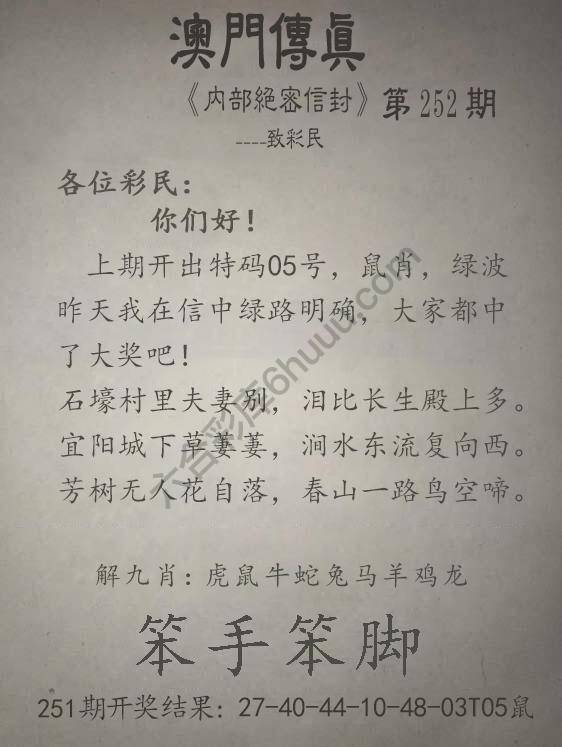 澳門傳眞
《内部絕密信封》第252期
----致彩民
各位彩民：
你们好！
上期开出特码05号，鼠肖，绿波
昨天我在信中绿路明确，大家都中
了大奖吧！
石壕村里夫妻别，泪比长生殿上多。
宜阳城下草萋萋，涧水东流复向西。
芳树无人花自落，春山一路鸟空啼。
解九肖：虎鼠牛蛇兔马羊鸡龙
笨手笨脚
251期开奖结果：27-40-44-10-48-03T05鼠
六合彩库6huuu.com